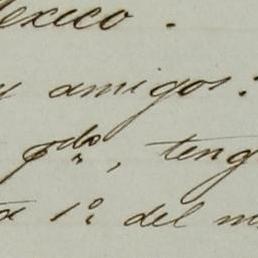 exico.
y amigos:
pdo., teng
ta 1º. del m